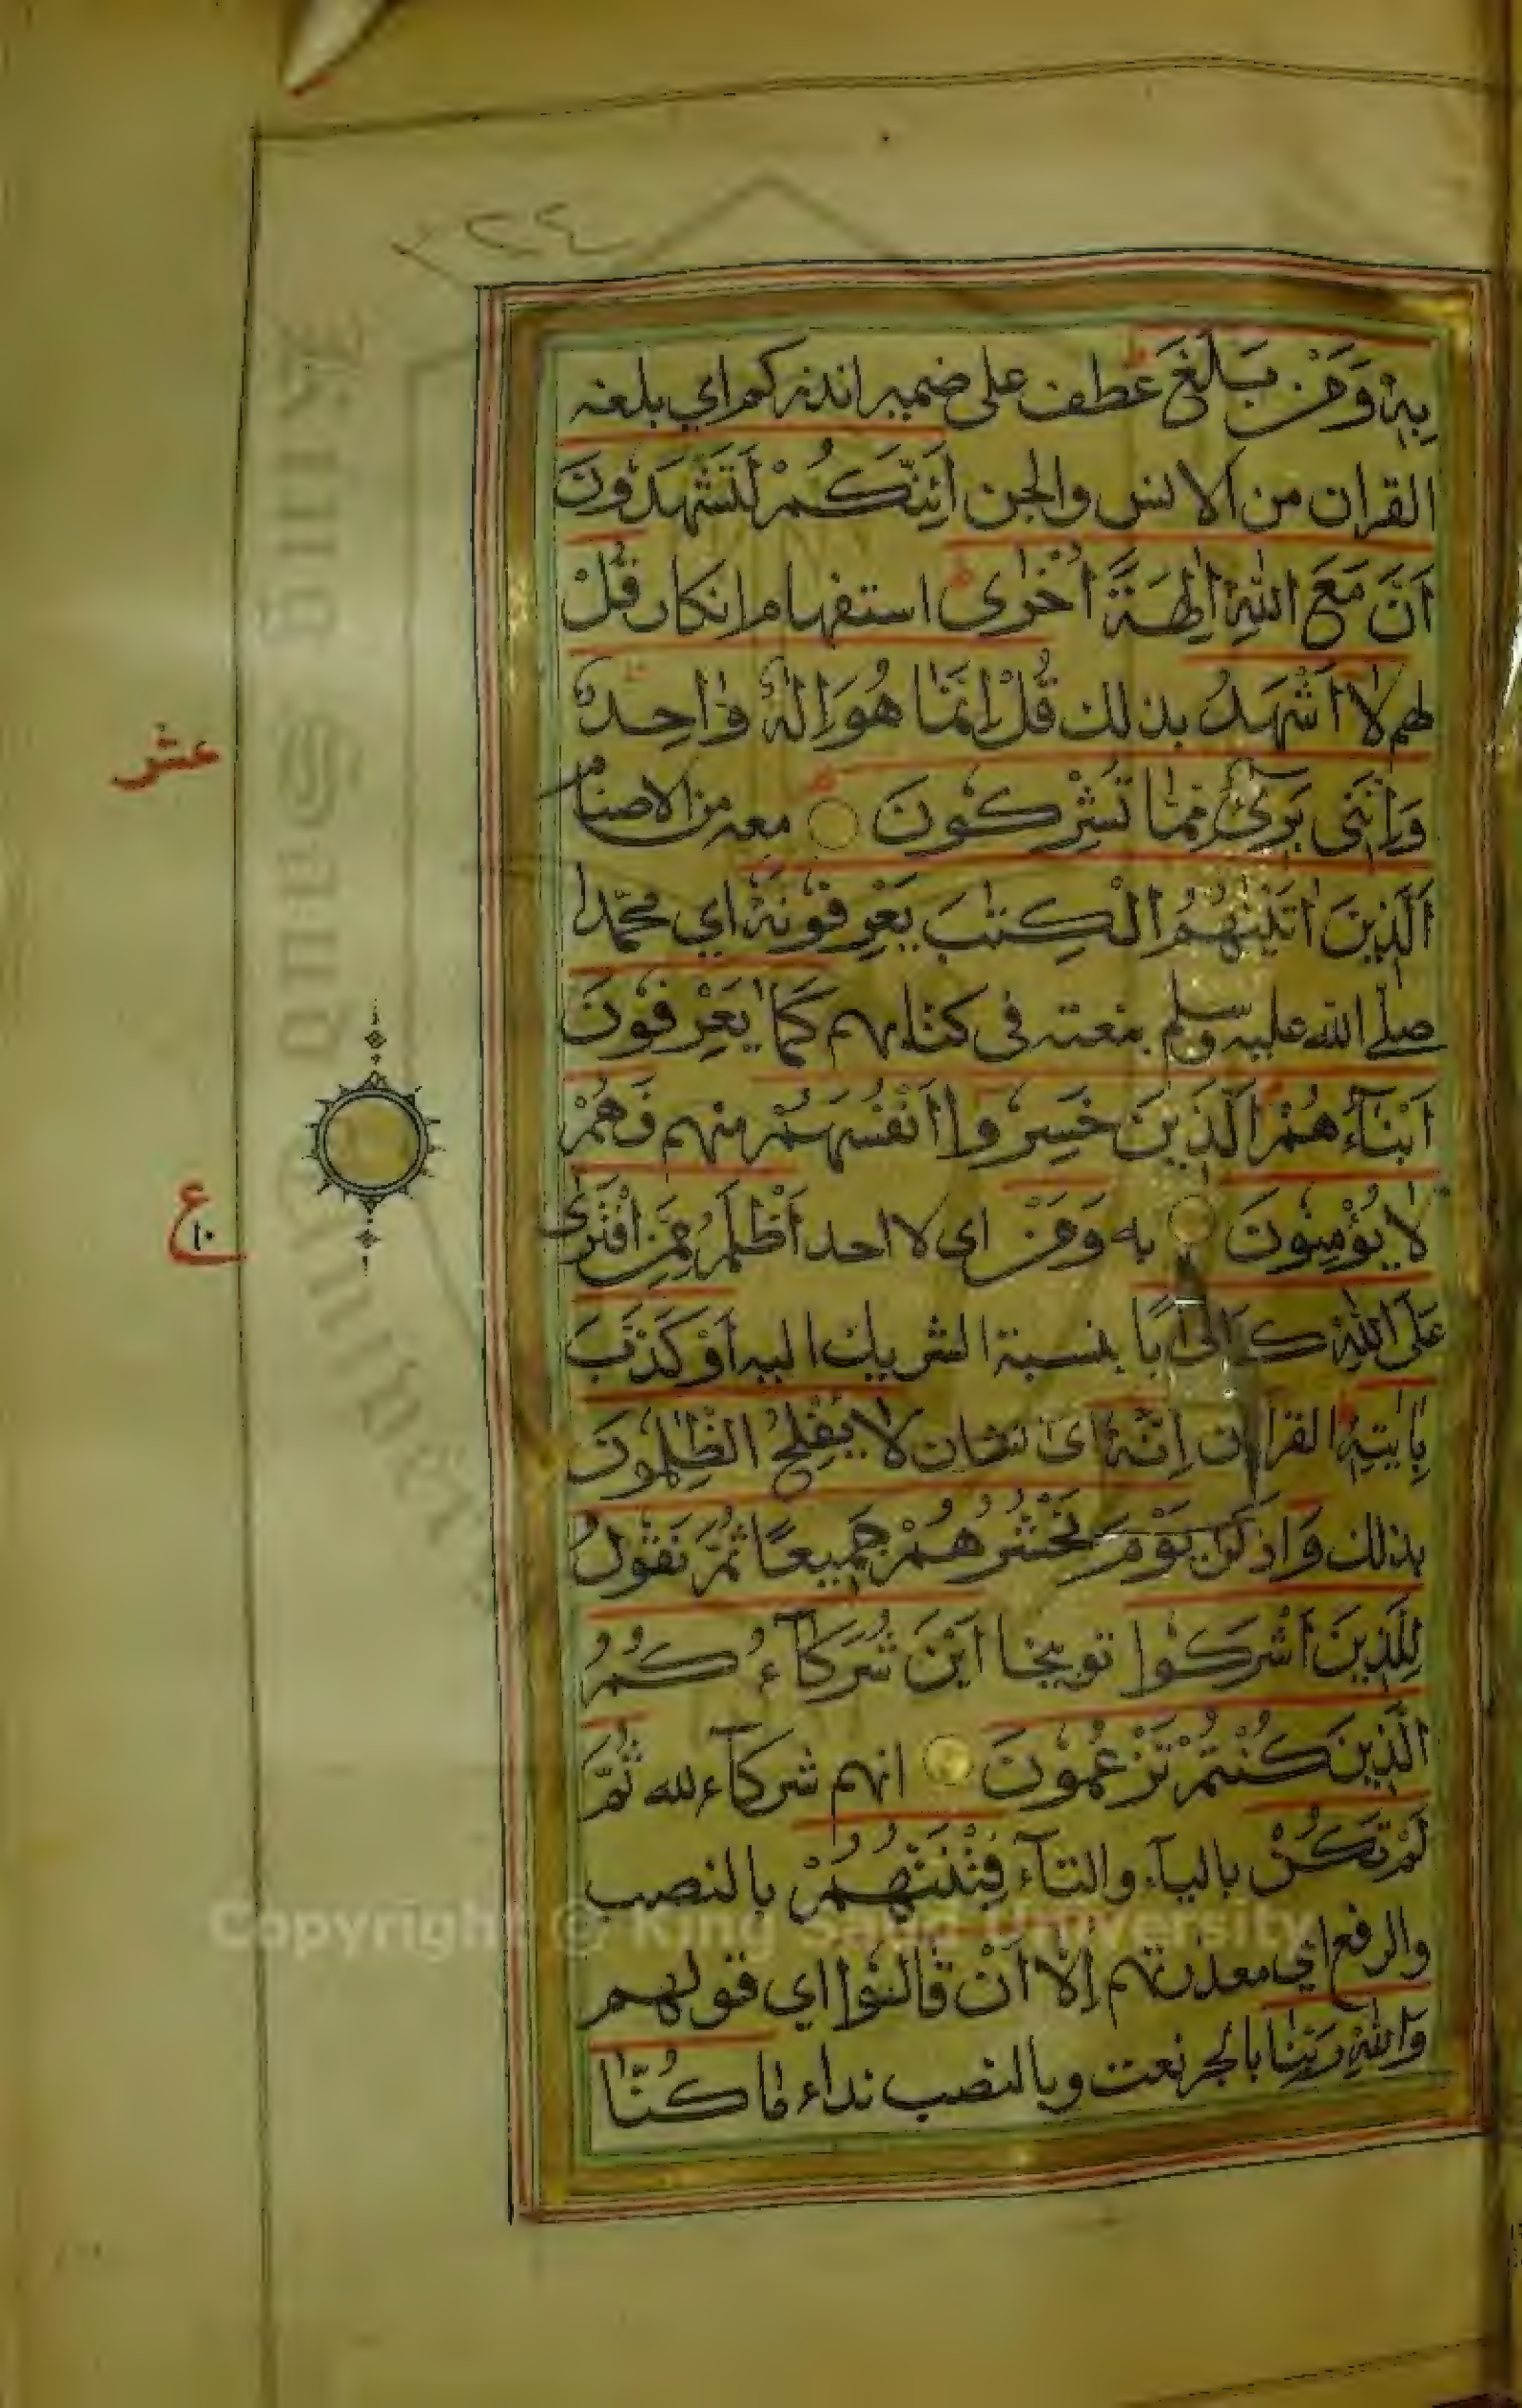 ٢٢٤
بِهٖ وَمَنْ بَلَغَ عطف على ضمير انذركم اي بلغه
القران من الانس والجن اَئِنَّكُمْ لَتَشْهَدُونَ
اَنَّ مَعَ اللّٰهِ اٰلِهَةً اُخْرٰى استفهام انكار قُلْ
لهم لَا اَشْهَدُ بذلك قُلْ اِنَّمَا هُوَ اِلٰهٌ وَاحِدٌ
وَاِنَّنِى بَرِىءٌ مِمَّا تُشْرِكُونَ معه من الاصنام
اَلَّذِينَ اٰتَيْنٰهُمُ الْكِتٰبَ يَعْرِفُونَهُ اي محمّدا
صلّى اللّه عليه وسلم بنعته فى كتابهم كَمَا يَعْرِفُونَ
اَبْنَآءَهُمْ اَلَّذِينَ خَسِرُوا اَنْفُسَهُمْ منهم فَهُمْ
لَا يُؤْمِنُونَ به وَمَنْ اى لا احد اَظْلَمُ مِمَّنِ افْتَرٰى
عَلَى اللّٰهِ كَذِبًا بنسبة الشريك اليه اَوْ كَذَّبَ
بِاٰيٰتِهٖ القران اِنَّهُ اى الشان لَا يُفْلِحُ الظّٰلِمُونَ
بذلك وَ اذكر يَوْمَ نَحْشُرُهُمْ جَمِيعًا ثُمَّ نَقُولُ
لِلَّذِينَ اَشْرَكُوا توبيخا اَيْنَ شُرَكَآءُكُمُ
الَّذِينَ كُنْتُمْ تَزْعُمُونَ انهم شركآء لله ثُمَّ
لَمْ تَكُنْ باليآء والتآء فِتْنَتُهُمْ بالنصب
والرفع اي معذرتهم اِلَّا اَنْ قَالُوا اي قولهم
وَاللّٰهِ رَبِّنَا بالجر نعت وبالنصب نداء مَا كُنَّا
عشر
ع
١٠
Copyright © King Saud University